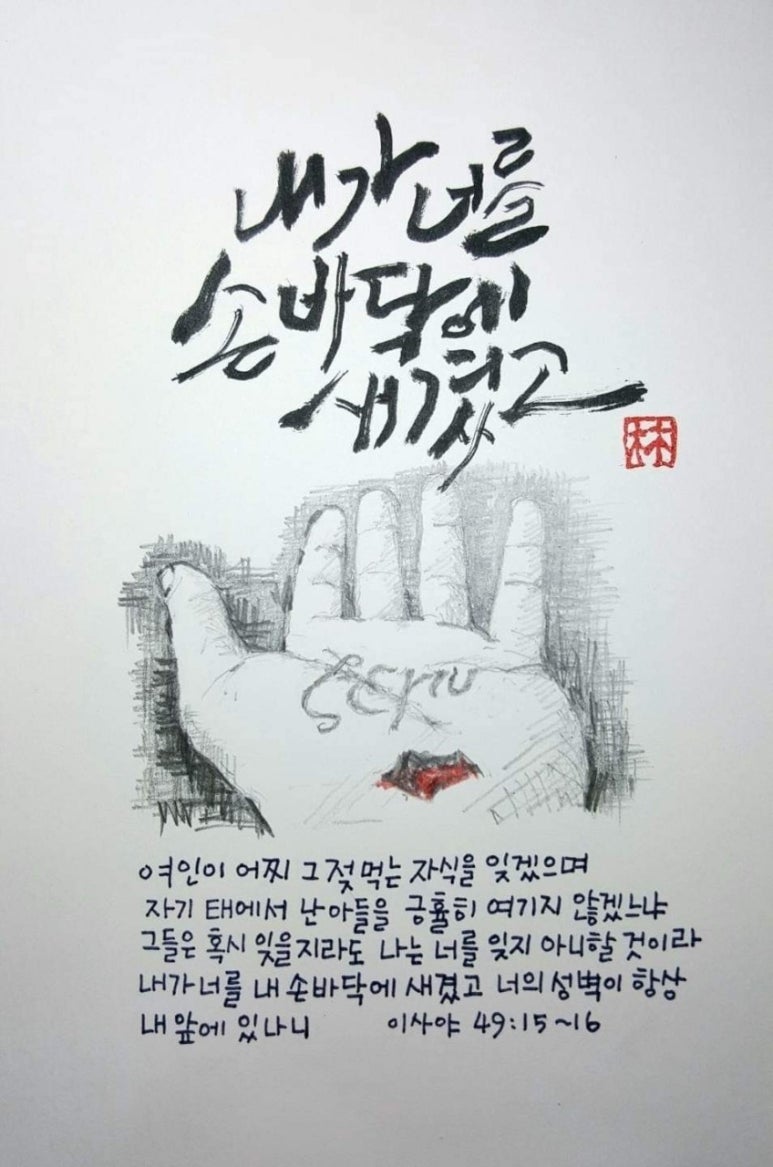 내가 너를
손바닥에
새겼고
林
여인이 어찌 그 젖 먹는 자식을 잊겠으며
자기 태에서 난 아들을 긍휼히 여기지 않겠느냐
그들은 혹시 잊을지라도 나는 너를 잊지 아니할 것이라
내가 너를 내 손바닥에 새겼고 너의 성벽이 항상
내 앞에 있나니 이사야 49:15~16